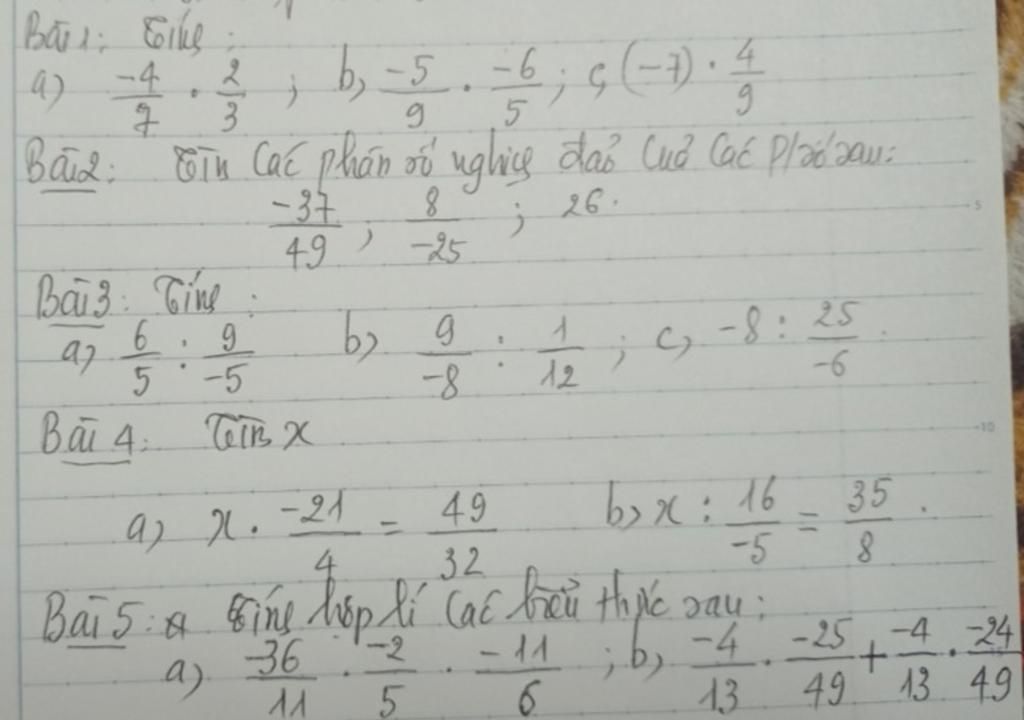 Bài 1: Tính:
a) \frac{-4}{7} . \frac{2}{3} ; b, \frac{-5}{9} . \frac{-6}{5} ; c, (-7) . \frac{4}{9}
Bài 2: Tìm các phân số nghịch đảo của các p/số sau:
\frac{-37}{49} , \frac{8}{-25} ; 26.
Bài 3: Tính:
a, \frac{6}{5} : \frac{9}{-5} b, \frac{9}{-8} : \frac{1}{12} ; c, -8 : \frac{25}{-6} .
Bài 4: Tìm x
a, x . \frac{-21}{4} = \frac{49}{32} b, x : \frac{16}{-5} = \frac{35}{8} .
Bài 5: Tính hợp lí các biểu thức sau:
a, \frac{-36}{11} . \frac{-2}{5} . \frac{-11}{6} ; b, \frac{-4}{13} . \frac{-25}{49} + \frac{-4}{13} . \frac{-24}{49}